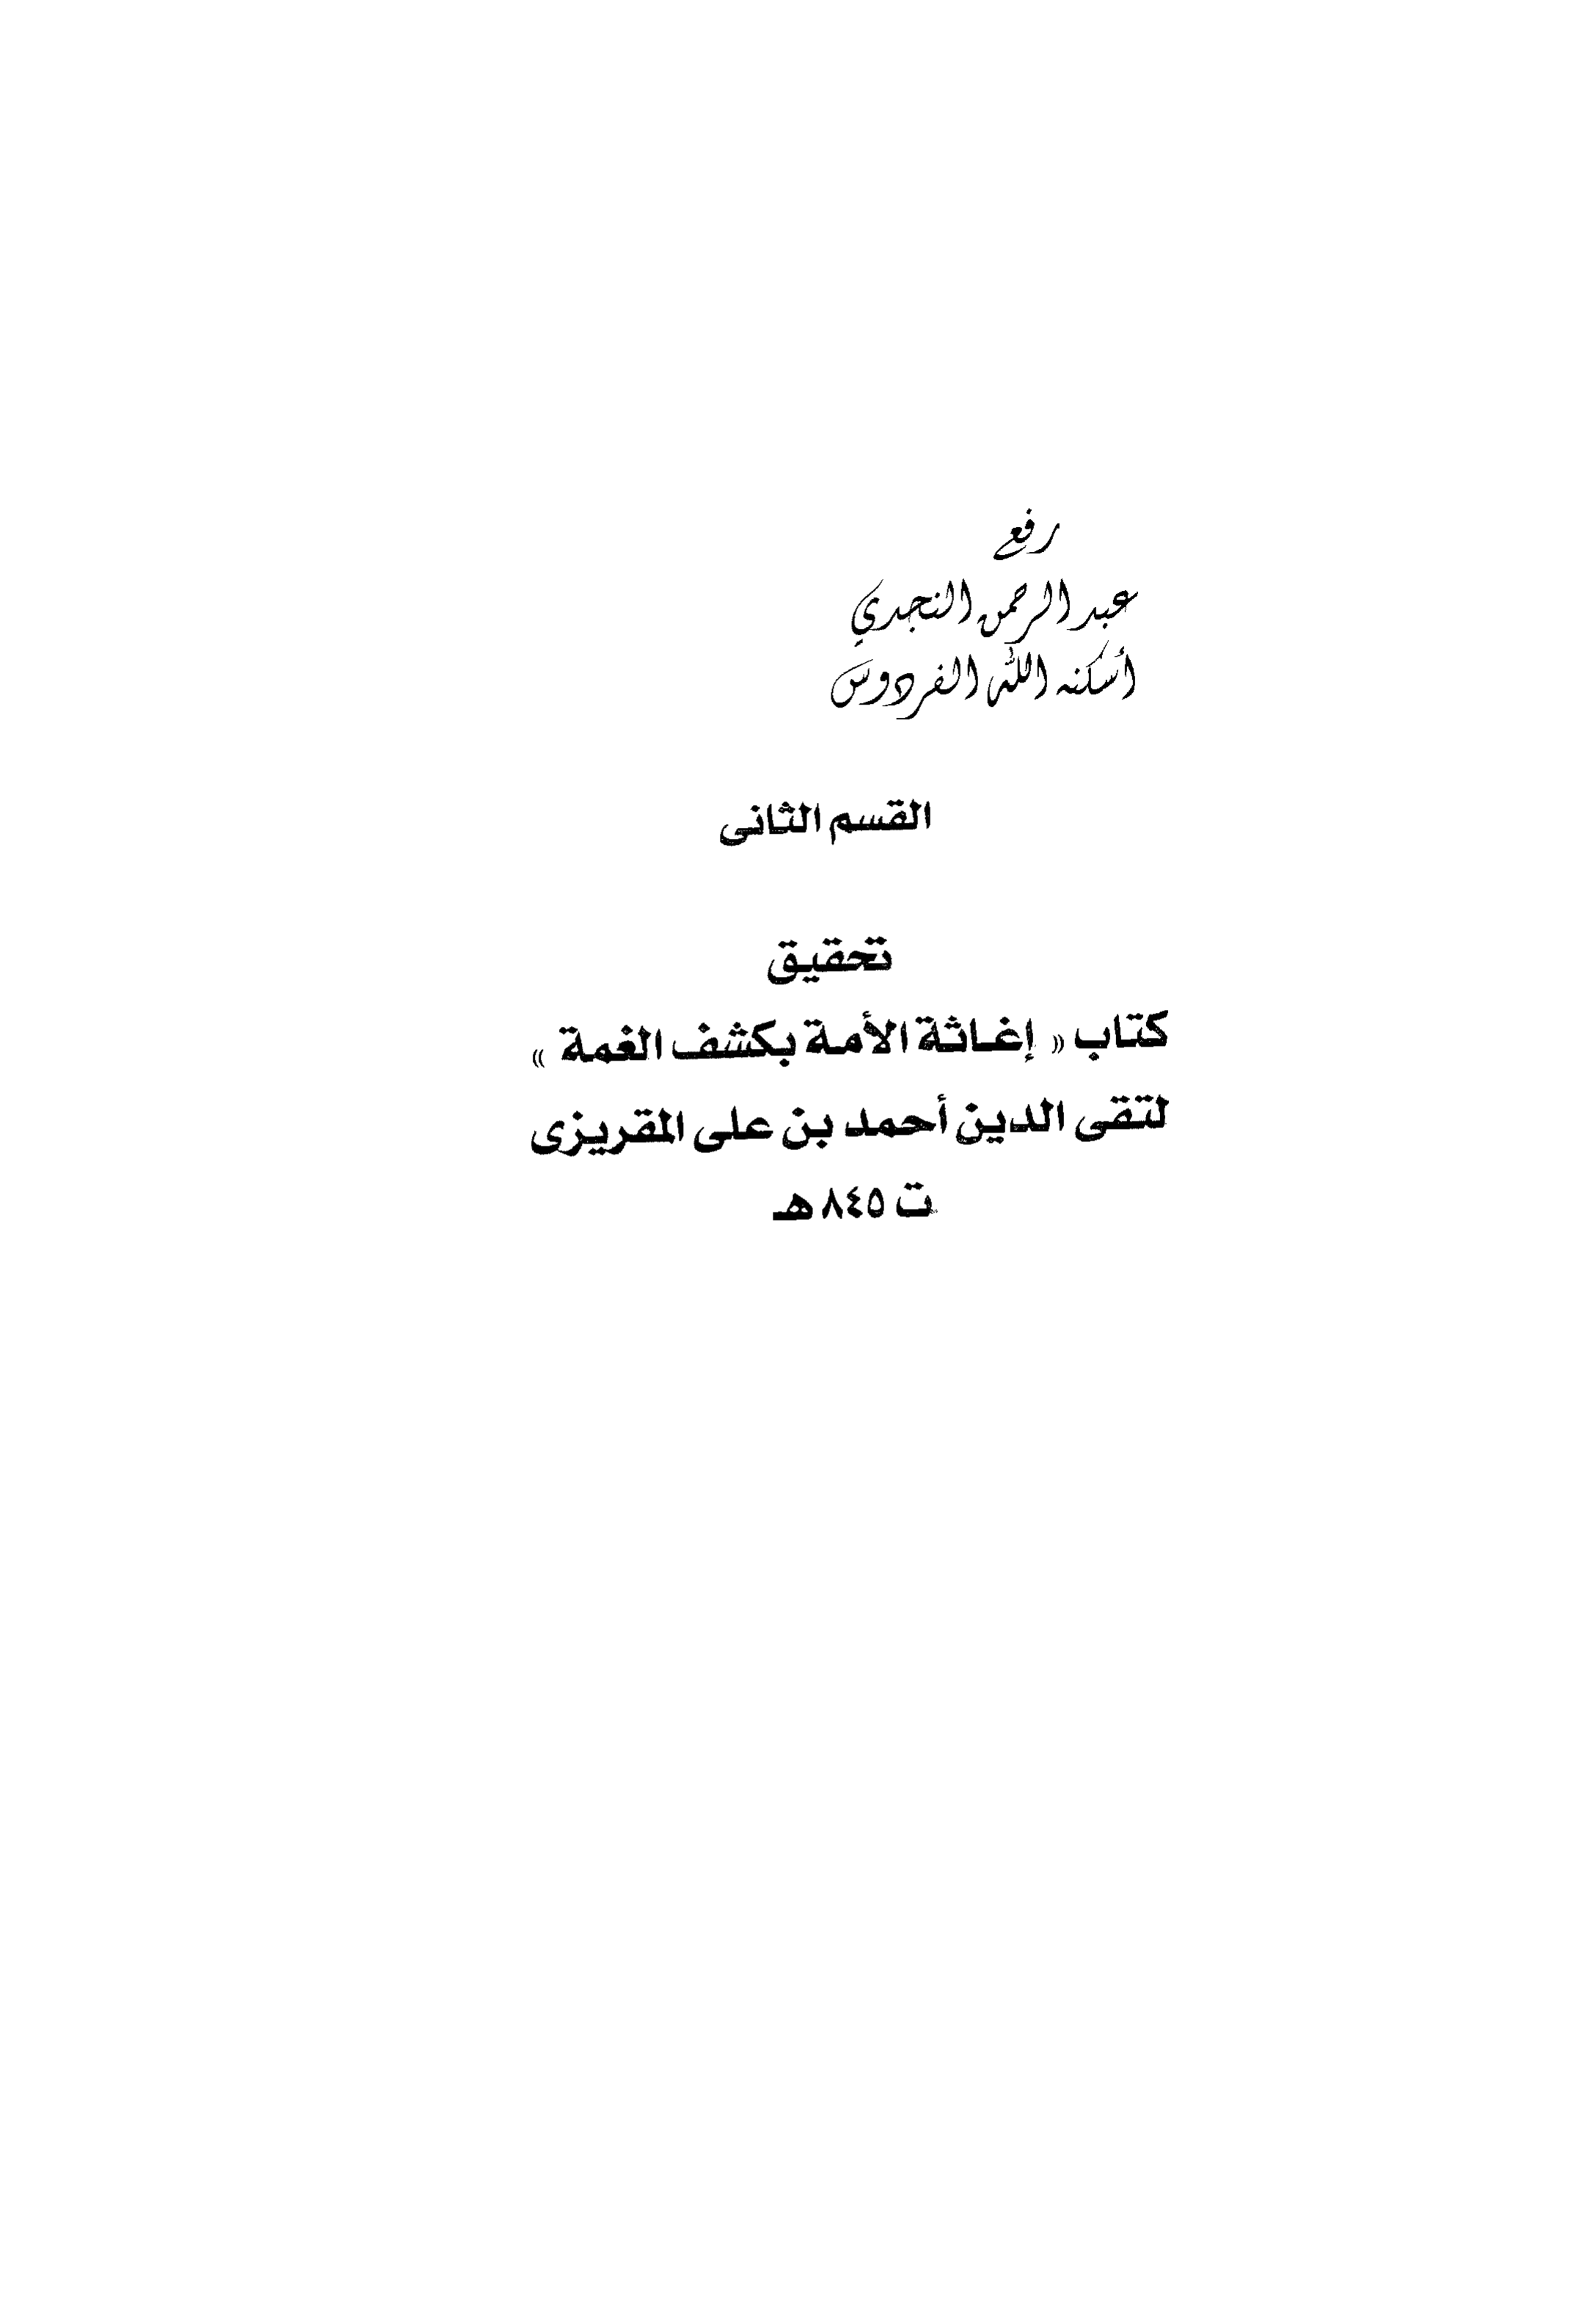 رفع
عبد الرحمن النجدي
أسكنه الله الفردوس
القسم الثانى
تحقيق
كتاب « إغاثة الأمة بكشف الغمة »
لتقى الدين أحمد بن على المقريزى
ت ٨٤٥ هـ